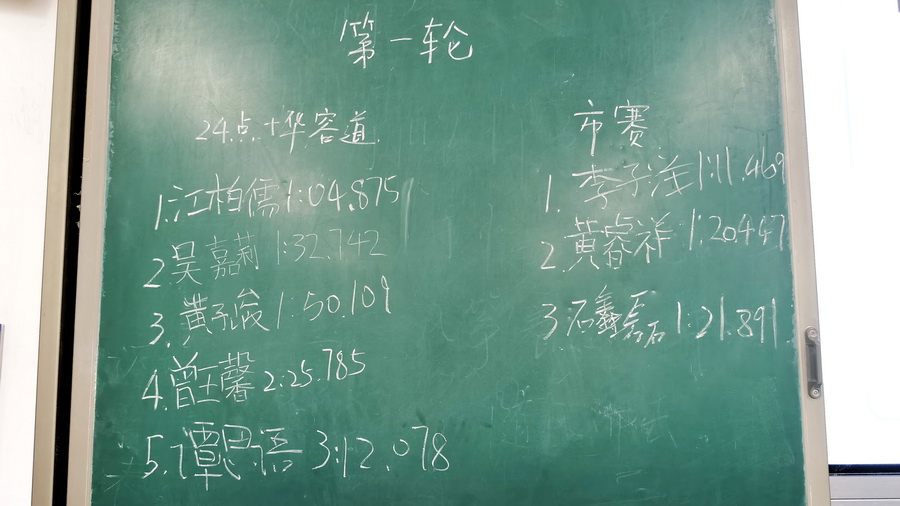 第一轮
24点+华容道
1.江柏儒 1:04.875
2.吴嘉莉 1:32.742
3.黄子俊 1:50.109
4.曾王馨 2:25.785
5.谭思语 3:12.078
市赛
1.李子洋 1:11.469
2.黄睿祥 1:20.447
3.石鑫磊 1:21.891